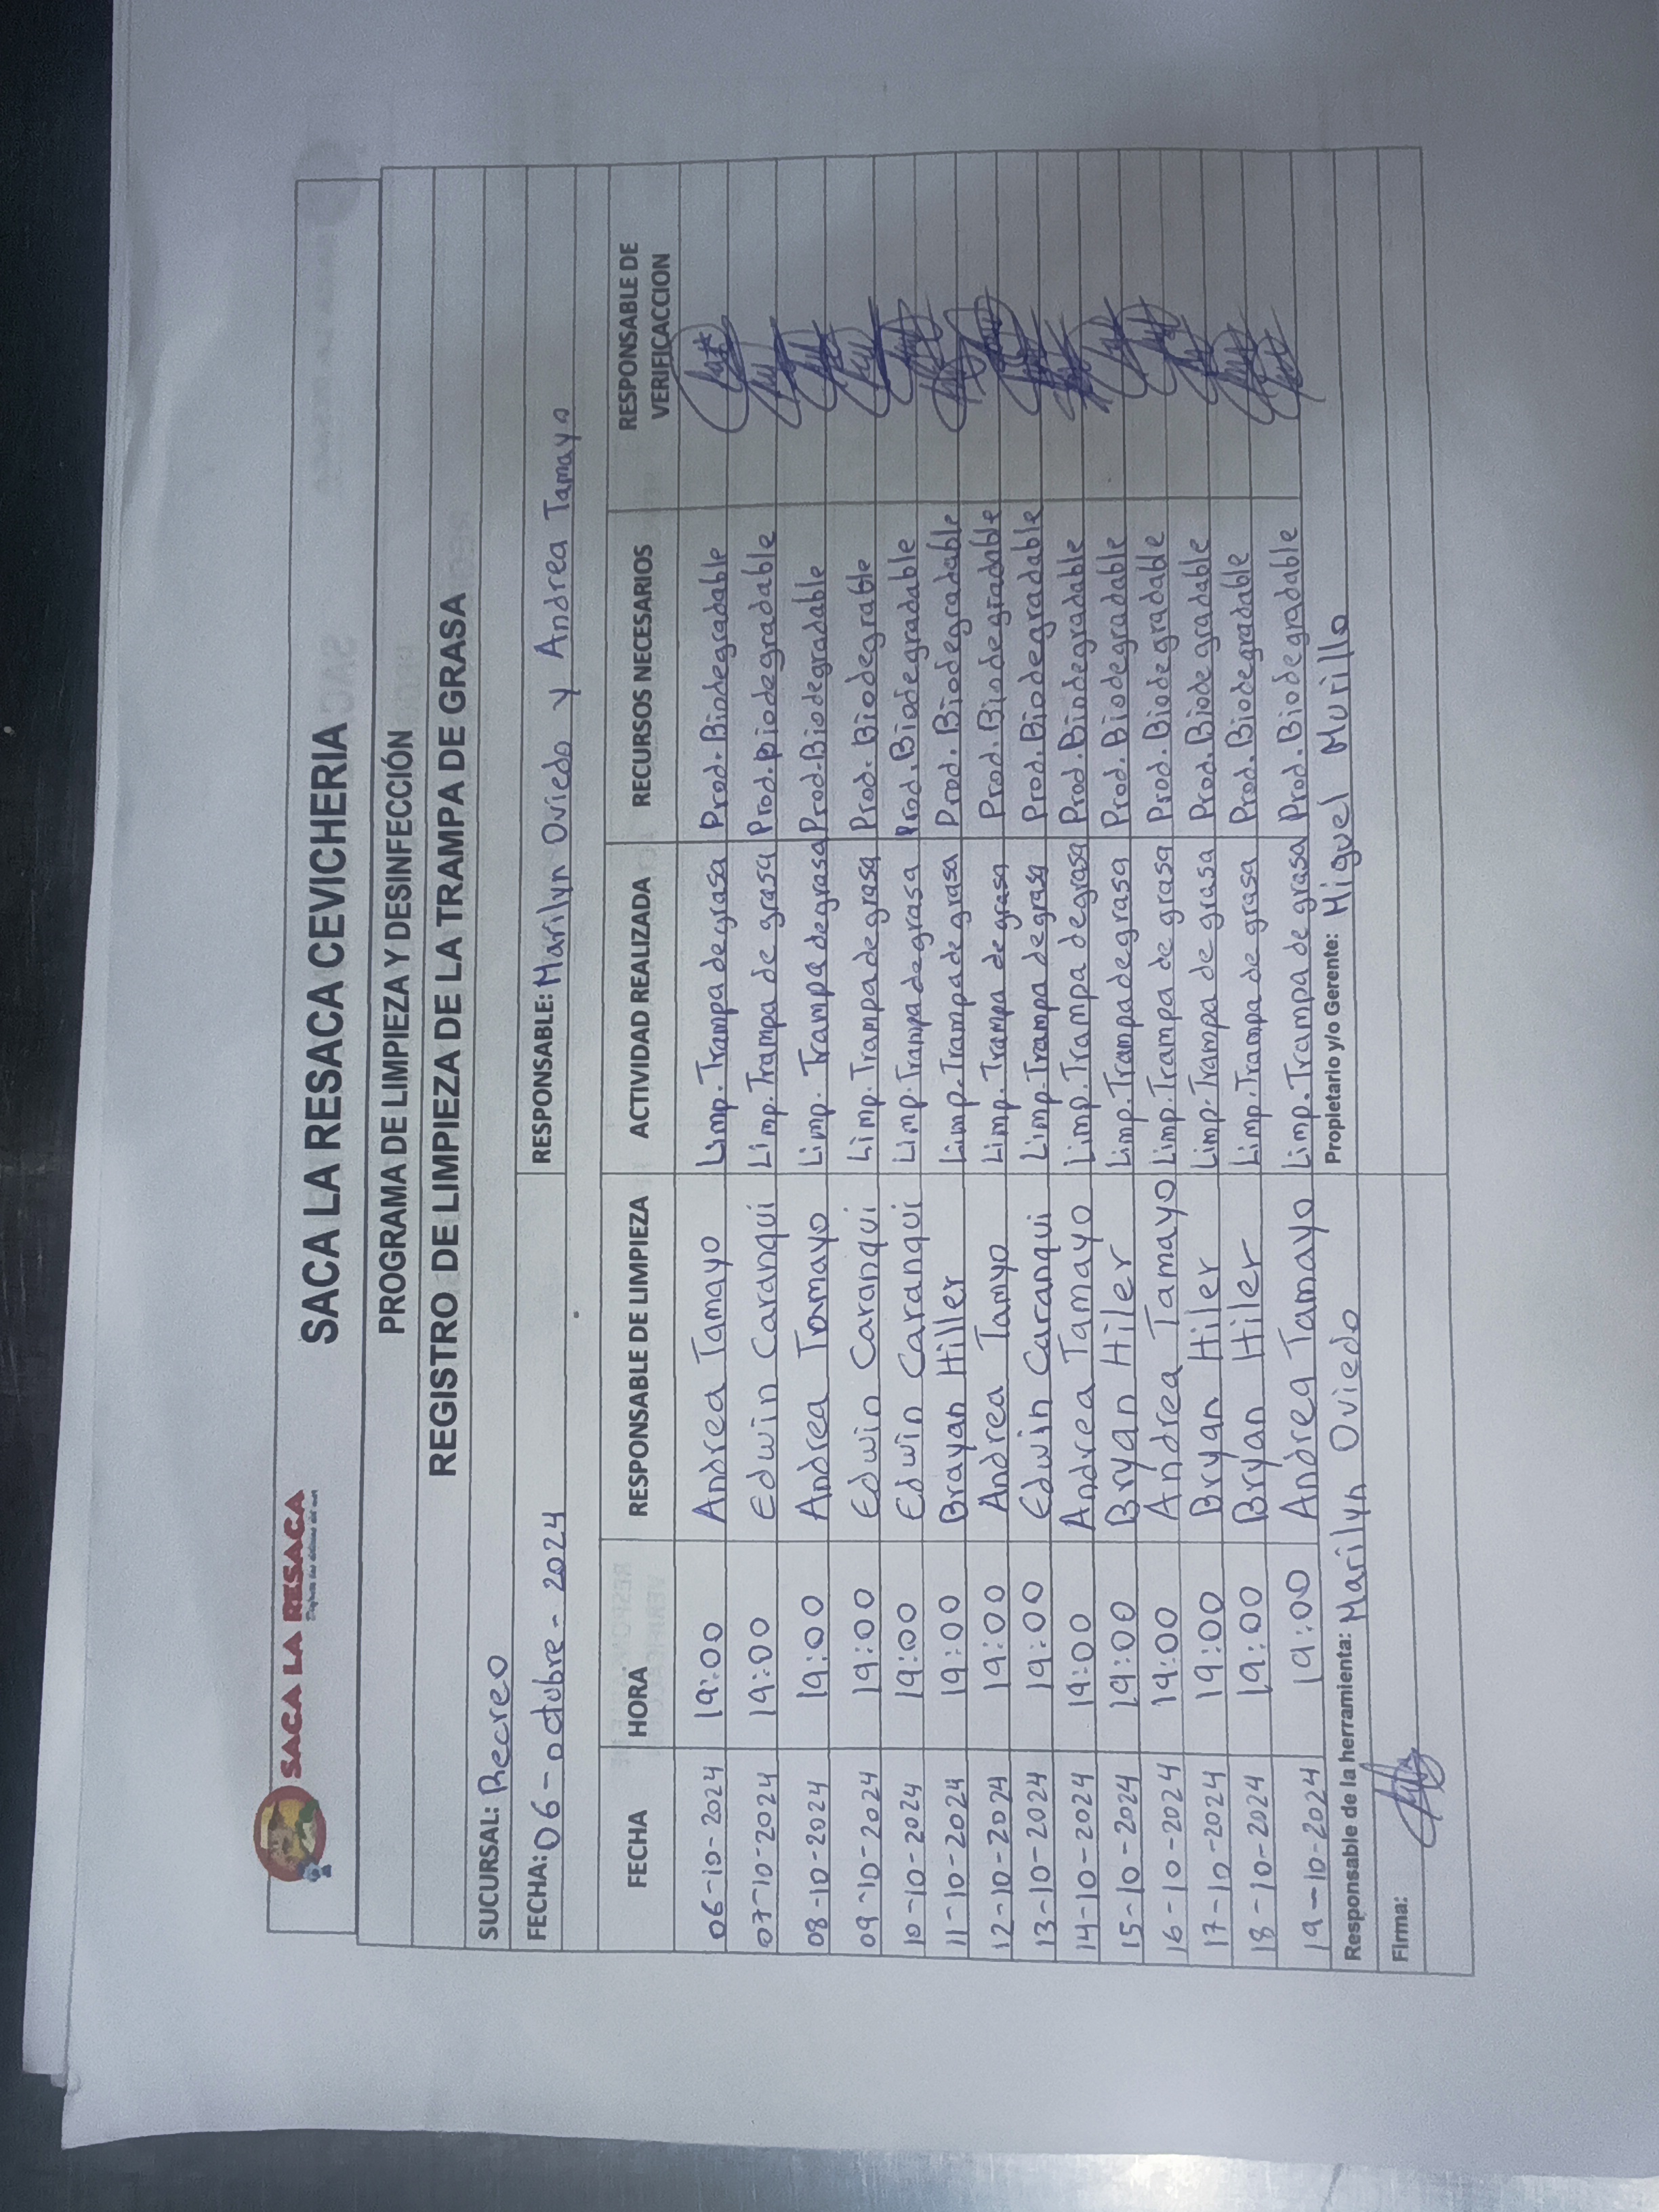 SACA LA RESACA
SACA LA RESACA CEVICHERIA
PROGRAMA DE LIMPIEZA Y DESINFECCIÓN
REGISTRO DE LIMPIEZA DE LA TRAMPA DE GRASA
SUCURSAL: Recreo
FECHA: 06-octubre-2024 RESPONSABLE: Marilyn Oviedo y Andrea Tamayo
FECHA HORA RESPONSABLE DE LIMPIEZA ACTIVIDAD REALIZADA RECURSOS NECESARIOS RESPONSABLE DE VERIFICACCION
06-10-2024 19:00 Andrea Tamayo Limp. Trampa de grasa Prod. Biodegradable
07-10-2024 19:00 Edwin Caranqui Limp. Trampa de grasa Prod. Biodegradable
08-10-2024 19:00 Andrea Tamayo Limp. Trampa de grasa Prod. Biodegradable
09-10-2024 19:00 Edwin Caranqui Limp. Trampa de grasa Prod. Biodegrable
10-10-2024 19:00 Edwin Caranqui Limp. Trampa de grasa Prod. Biodegradable
11-10-2024 19:00 Brayan Hiller Limp. Trampa de grasa Prod. Biodegradable
12-10-2024 19:00 Andrea Tamyo Limp. Trampa de grasa Prod. Biodegradable
13-10-2024 19:00 Edwin Caranqui Limp. Trampa de grasa Prod. Biodegradable
14-10-2024 19:00 Andrea Tamayo Limp. Trampa de grasa Prod. Biodegradable
15-10-2024 19:00 Bryan Hiler Limp. Trampa de grasa Prod. Biodegradable
16-10-2024 19:00 Andrea Tamayo Limp. Trampa de grasa Prod. Biodegradable
17-10-2024 19:00 Bryan Hiler Limp. Trampa de grasa Prod. Biodegradable
18-10-2024 19:00 Bryan Hiler Limp. Trampa de grasa Prod. Biodegradable
19-10-2024 19:00 Andrea Tamayo Limp. Trampa de grasa Prod. Biodegradable
Responsable de la herramienta: Marilyn Oviedo Propietario y/o Gerente: Miguel Murillo
Firma: